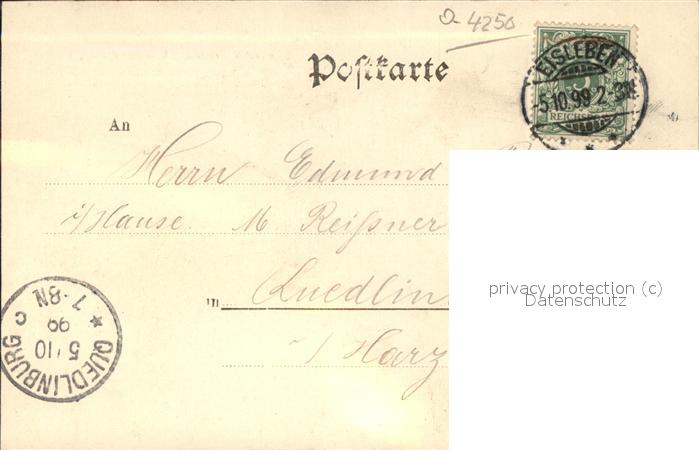 D-4250
Postkarte
EISLEBEN
-5.10.99 2-3N.
REICHSPOST
An
Herrn Edmund
i/Hause. M. Reißner
in Quedlin
i/Harz
QUEDLINBURG
5/10
99
7-8N
C
privacy protection (c)
Datenschutz